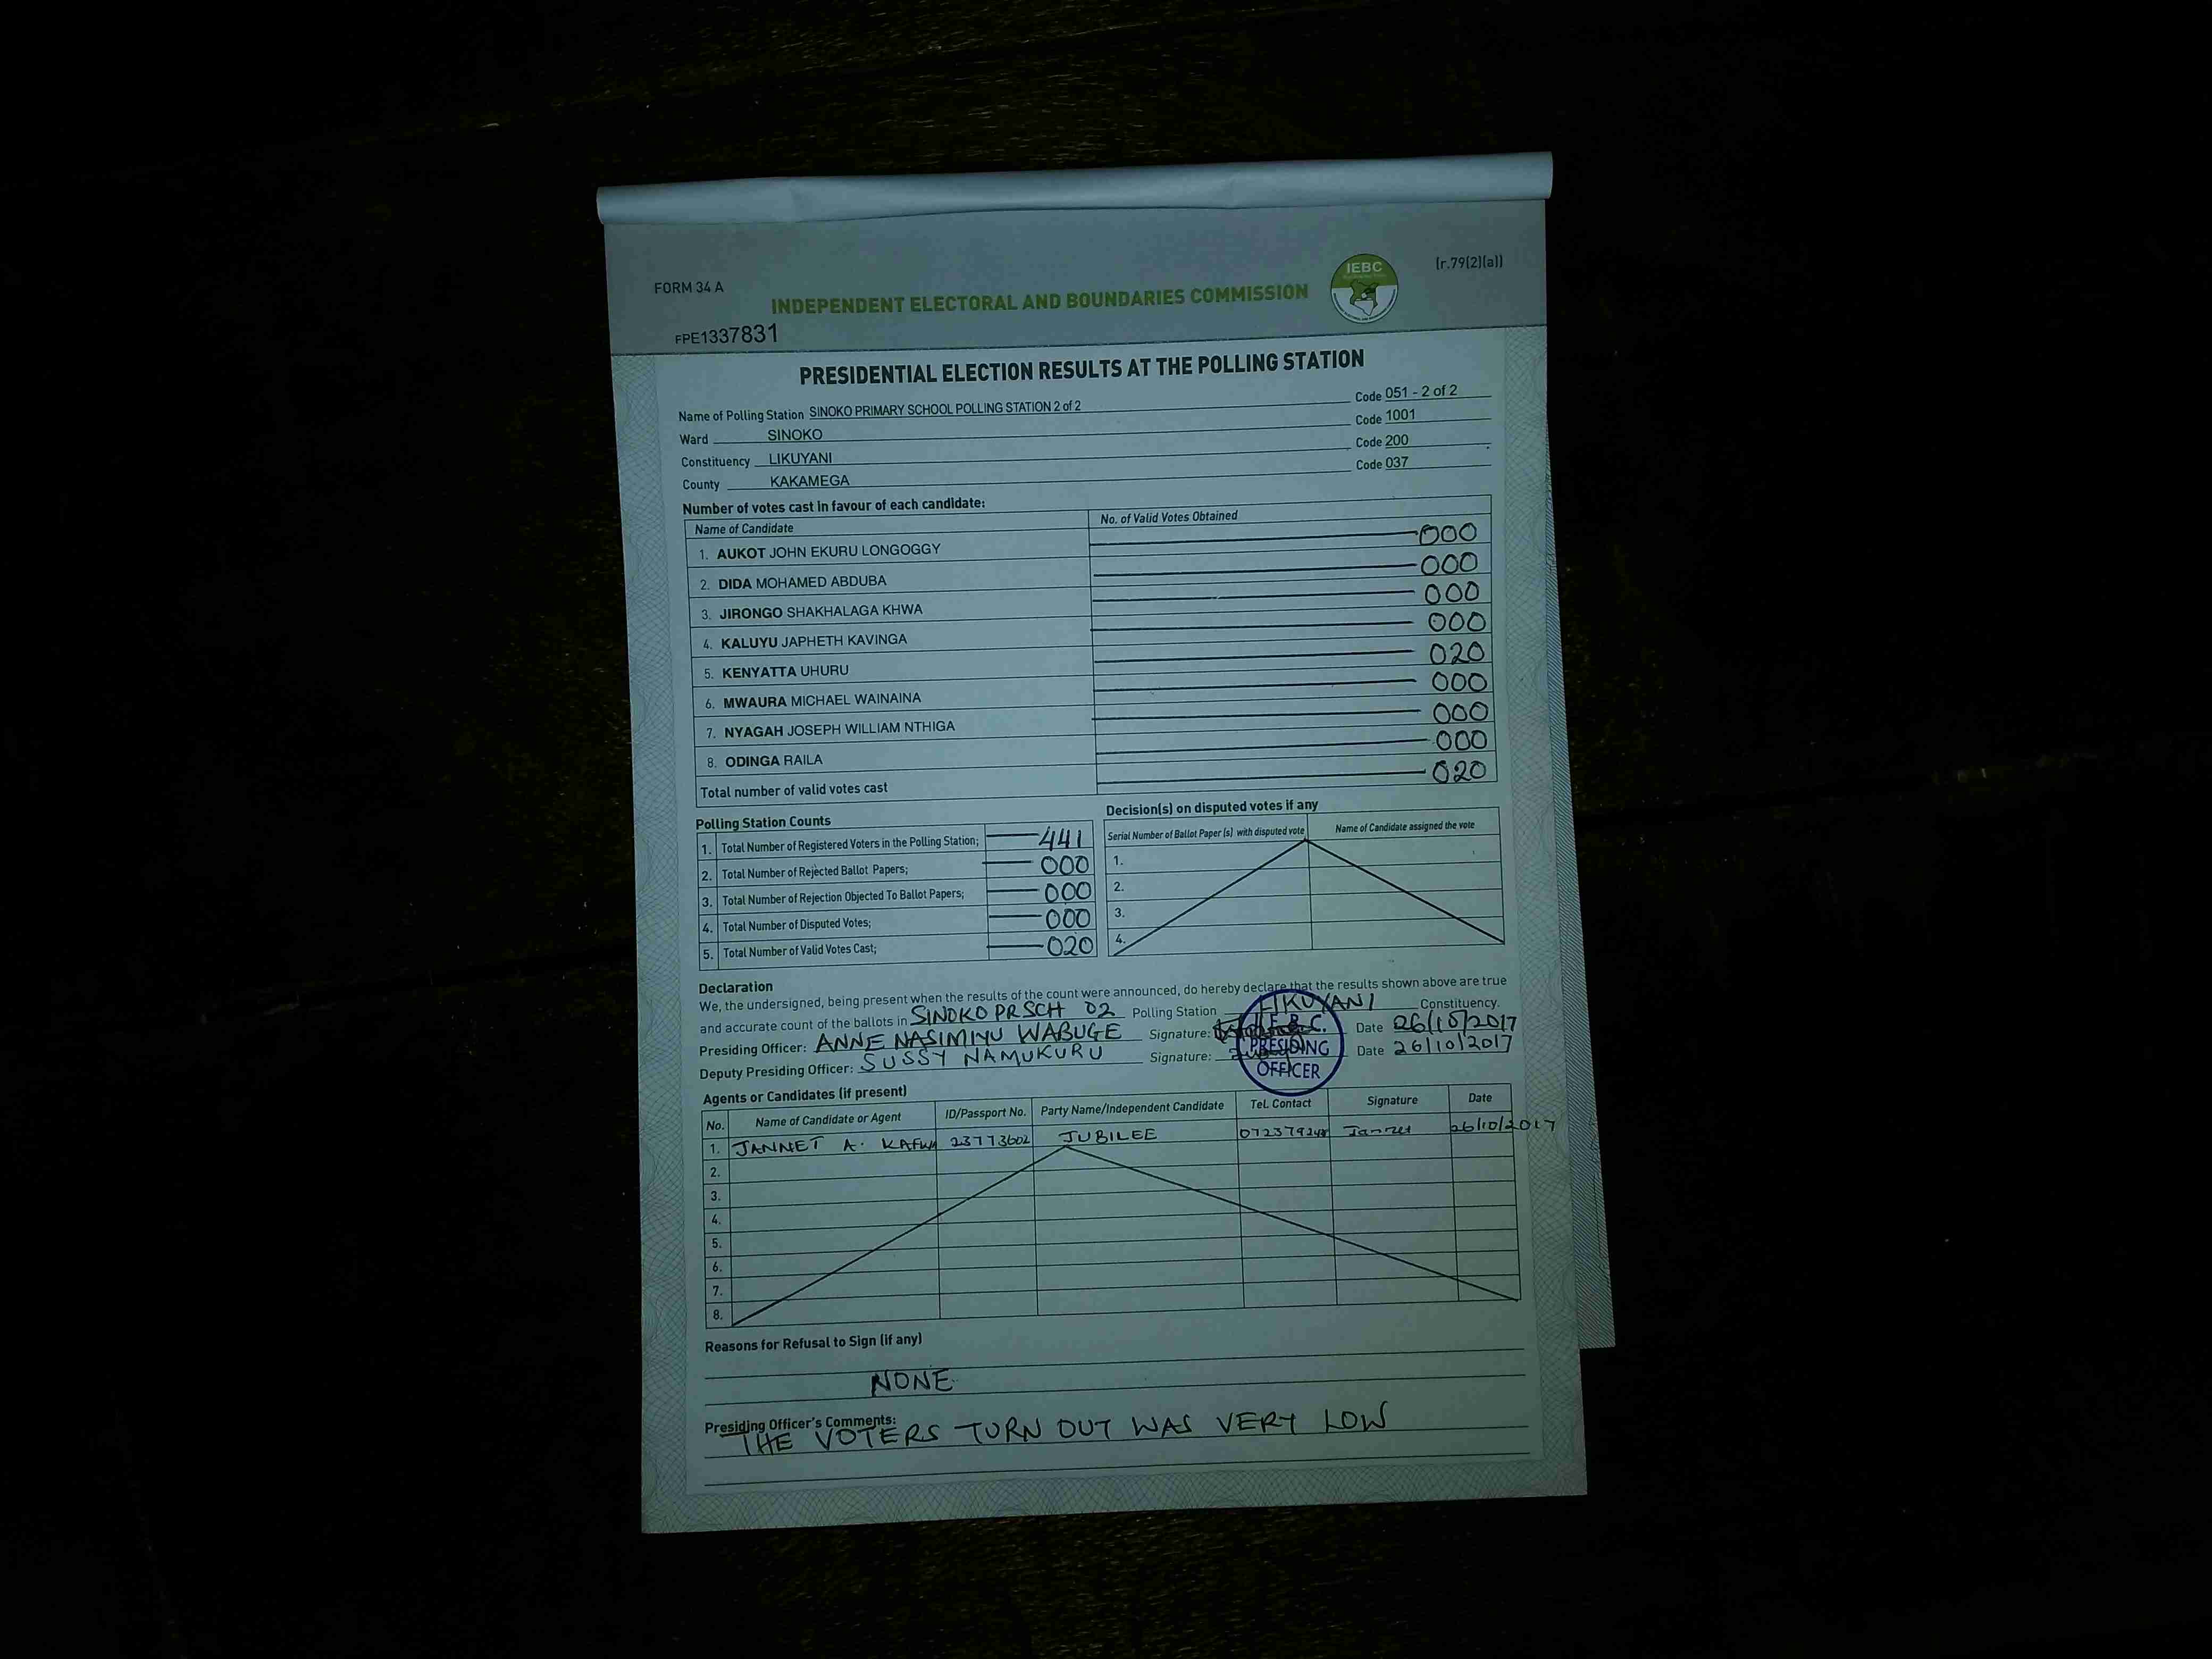 FORM 34 A
IEBC
(r.79(2)(a))
INDEPENDENT ELECTORAL AND BOUNDARIES COMMISSION
FPE1337831
PRESIDENTIAL ELECTION RESULTS AT THE POLLING STATION
Name of Polling Station SINOKO PRIMARY SCHOOL POLLING STATION 2 of 2 Code 051 - 2 of 2
Ward SINOKO Code 1001
Constituency LIKUYANI Code 200
County KAKAMEGA Code 037
Number of votes cast in favour of each candidate:
Name of Candidate No. of Valid Votes Obtained
1. AUKOT JOHN EKURU LONGOGGY 000
2. DIDA MOHAMED ABDUBA 000
3. JIRONGO SHAKHALAGA KHWA 000
4. KALUYU JAPHETH KAVINGA 000
5. KENYATTA UHURU 020
6. MWAURA MICHAEL WAINAINA 000
7. NYAGAH JOSEPH WILLIAM NTHIGA 000
8. ODINGA RAILA 000
Total number of valid votes cast 020
Polling Station Counts
1. Total Number of Registered Voters in the Polling Station; 441
2. Total Number of Rejected Ballot Papers; 000
3. Total Number of Rejection Objected To Ballot Papers; 000
4. Total Number of Disputed Votes; 000
5. Total Number of Valid Votes Cast; 020
Decision(s) on disputed votes if any
Serial Number of Ballot Paper (s) with disputed vote Name of Candidate assigned the vote
1.
2.
3.
4.
Declaration
We, the undersigned, being present when the results of the count were announced, do hereby declare that the results shown above are true
and accurate count of the ballots in SINOKO PR SCH 02 Polling Station LIKUYANI Constituency.
Presiding Officer: ANNE NASIMIYU WABUGE Signature: Date 26/10/2017
Deputy Presiding Officer: SUSSY NAMUKURU Signature: Date 26/10/2017
PRESIDING
OFFICER
Agents or Candidates (if present)
No. Name of Candidate or Agent ID/Passport No. Party Name/Independent Candidate Tel. Contact Signature Date
1. JANNET A. 23773602 JUBILEE Jannet 26/10/2017
2.
3.
4.
5.
6.
7.
8.
Reasons for Refusal to Sign (if any)
NONE
Presiding Officer's Comments:
THE VOTERS TURN OUT WAS VERY LOW